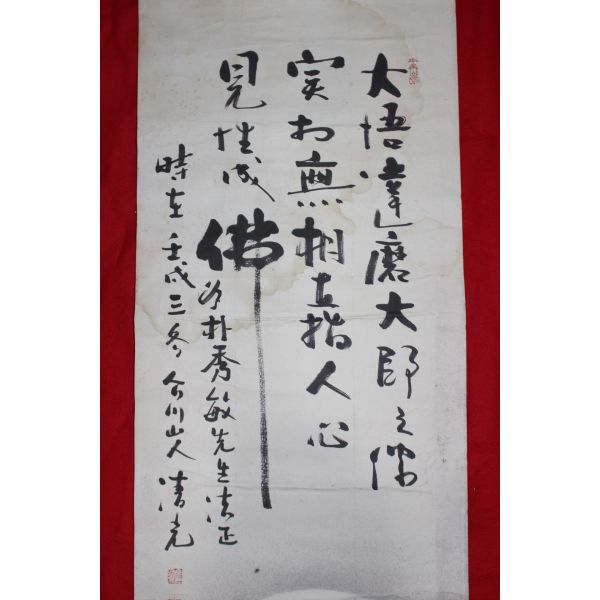 大悟達磨大師之像
実相無相直指人心
見性成佛
為朴秀敏先生法正
時在壬戌三冬 合川山人 清光